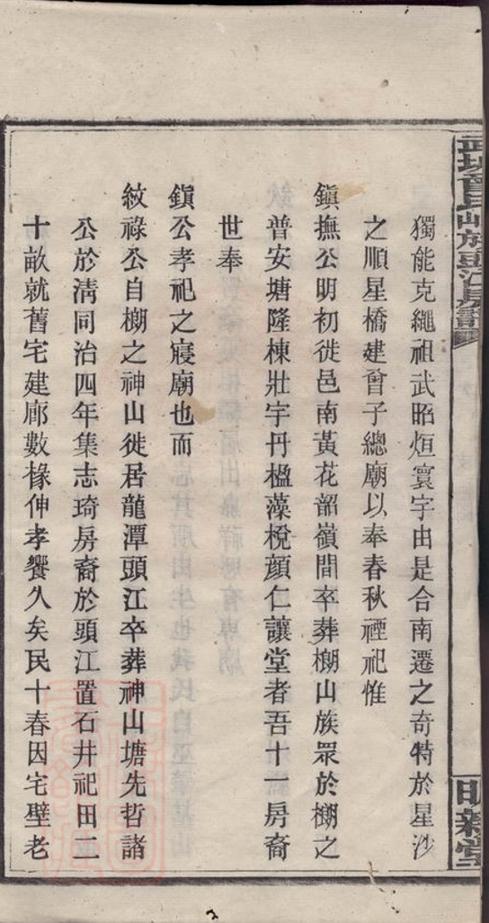 獨能克繩祖武昭烜寰宇由是合南遷之奇特於星沙
之順星橋建曾子總廟以奉春秋禋祀惟
鎭撫公明初徙邑南黃花韶嶺間卒葬棚山族眾於棚之
普安塘隆棟壯宇丹楹藻梲顏仁讓堂者吾十一房裔
世奉
鎭公孝祀之寢廟也而
紋祿公自棚之神山徙居龍潭頭江卒葬神山塘先哲諸
公於淸同治四年集志琦房裔於頭江置石井祀田二
十畝就舊宅建廊數椽伸孝饗久矣民十春因宅壁老